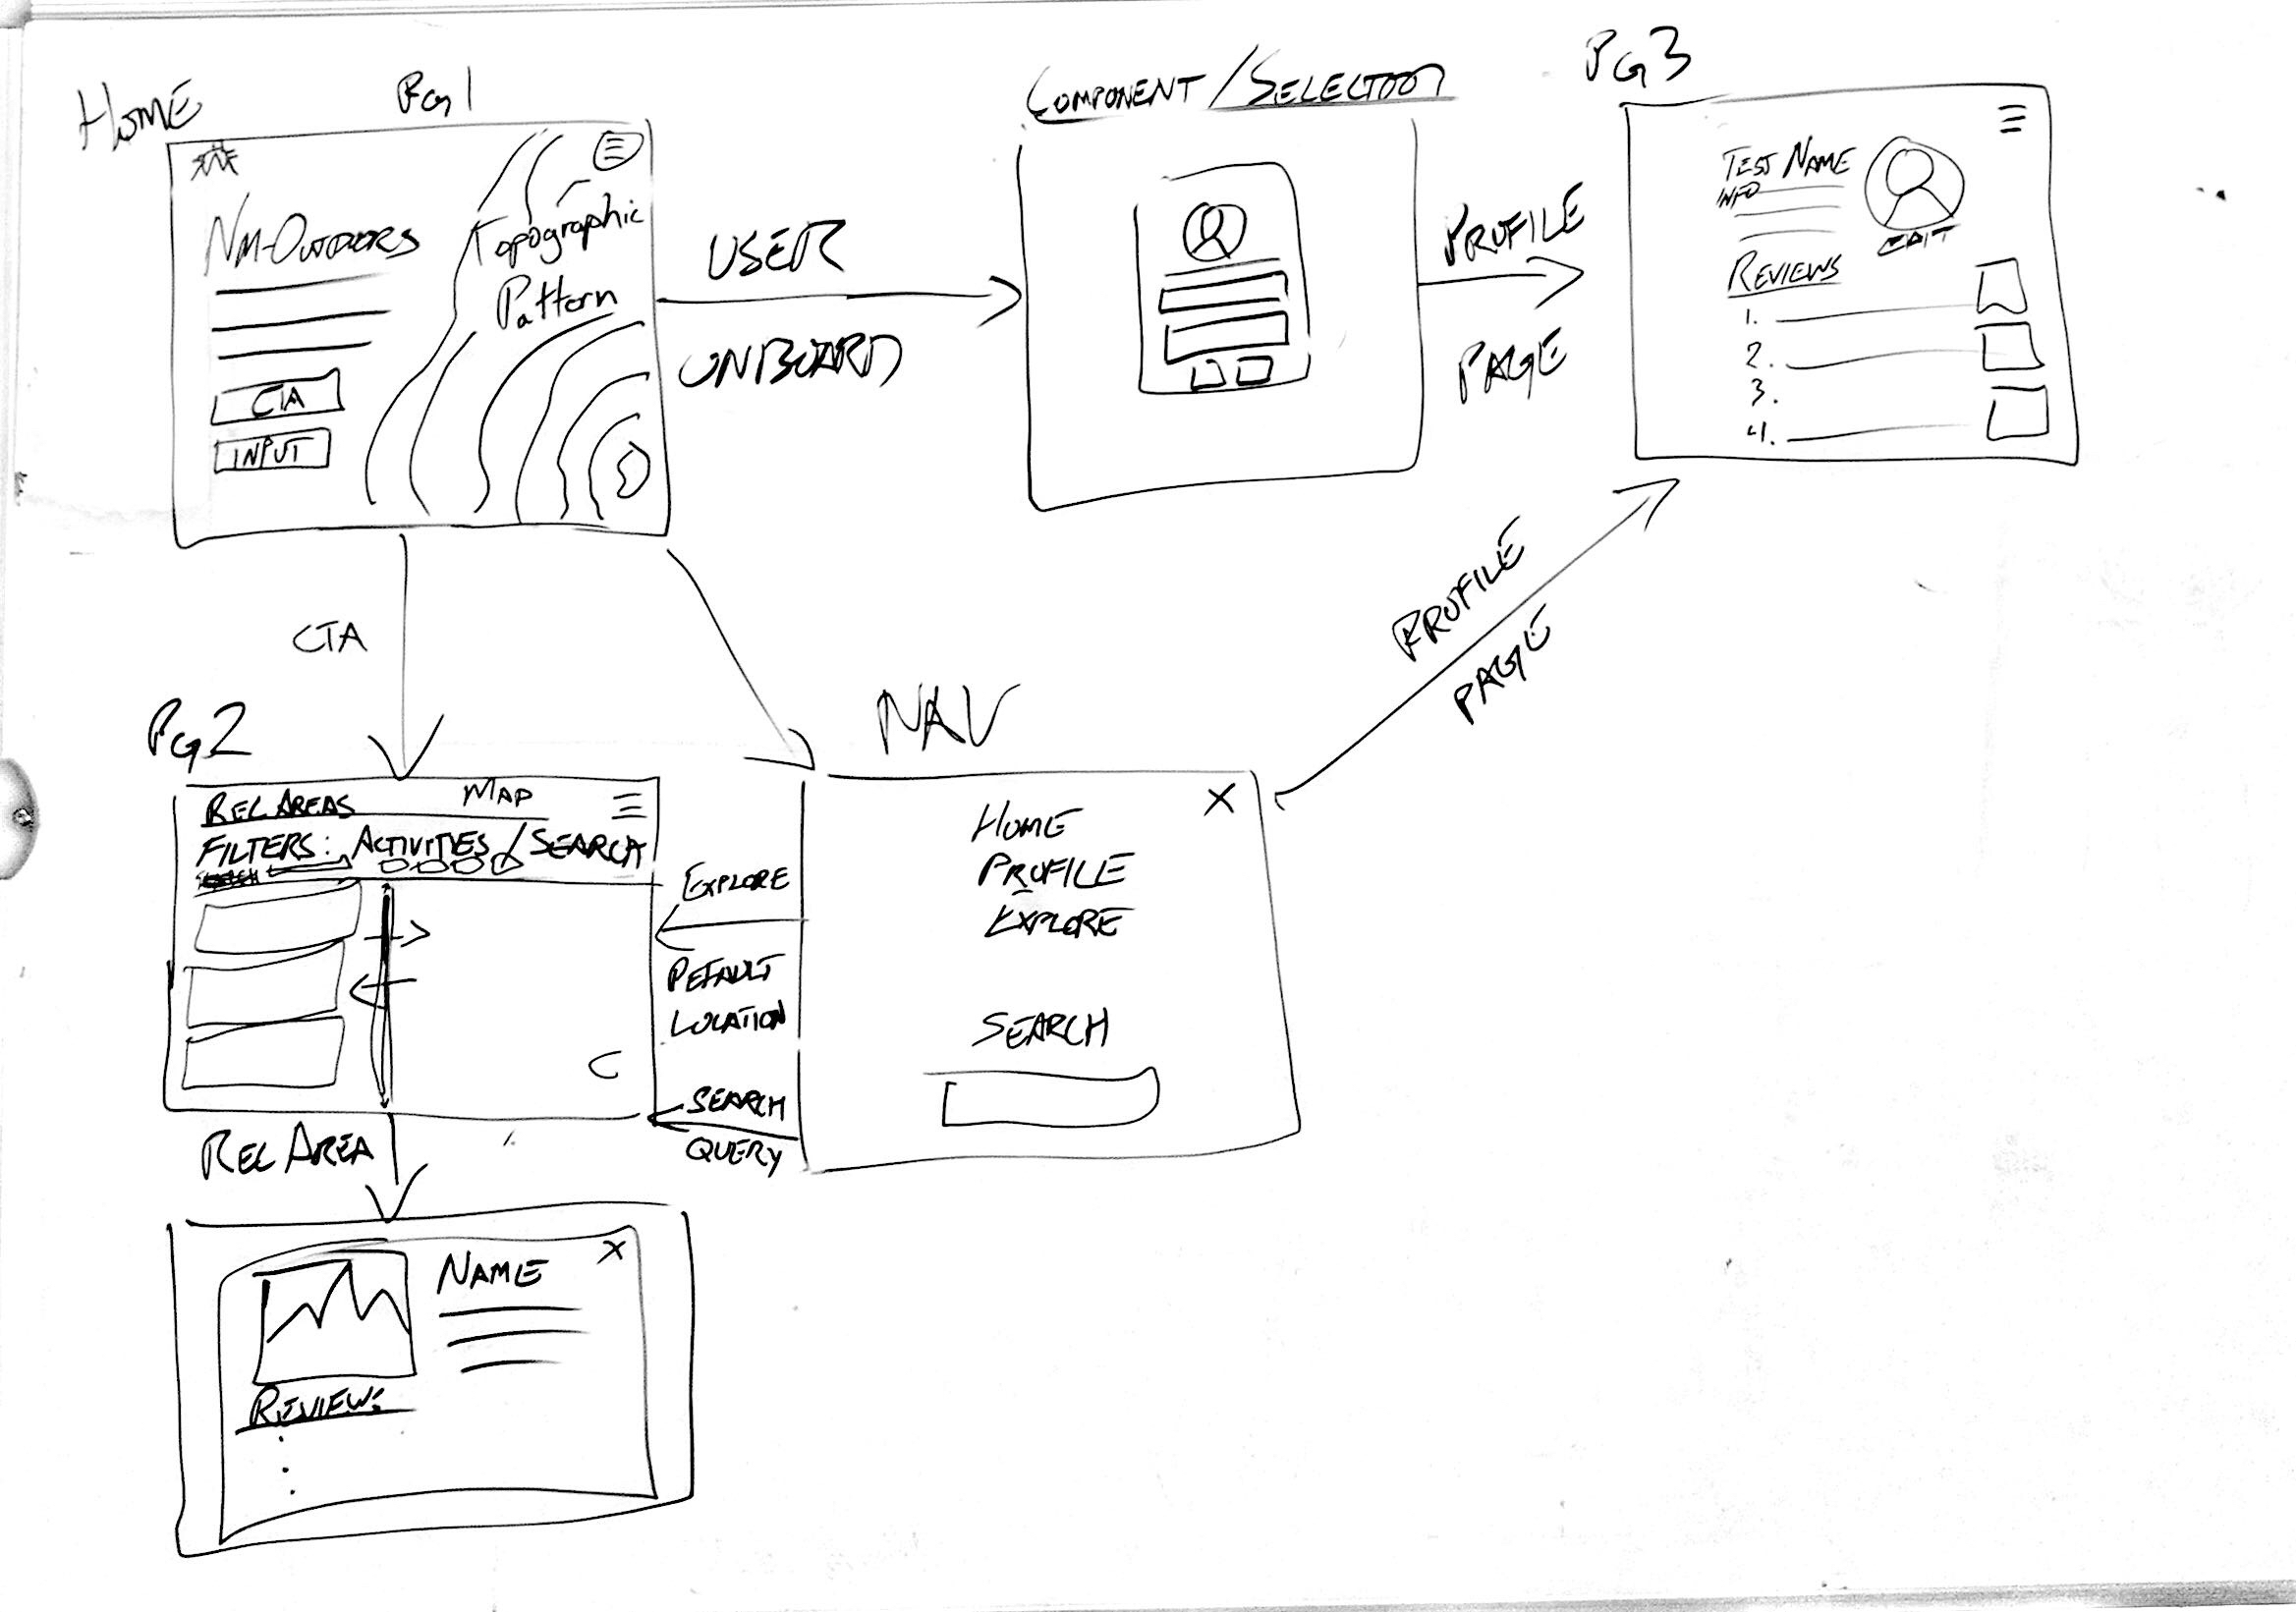 HOME
Pg1
NM-OUTDOORS
Topographic
Pattern
CTA
INPUT
USER
ONBOARD
COMPONENT/SELECTION
PROFILE
PAGE
Pg3
TEST NAME
INFO
EDIT
REVIEWS
1.
2.
3.
4.
CTA
PROFILE
PAGE
Pg2
REC AREAS
MAP
FILTERS: ACTIVITIES / SEARCH
EXPLORE
DEFAULT
LOCATION
SEARCH
QUERY
NAV
X
HOME
PROFILE
EXPLORE
SEARCH
REC AREA
NAME
X
REVIEWS